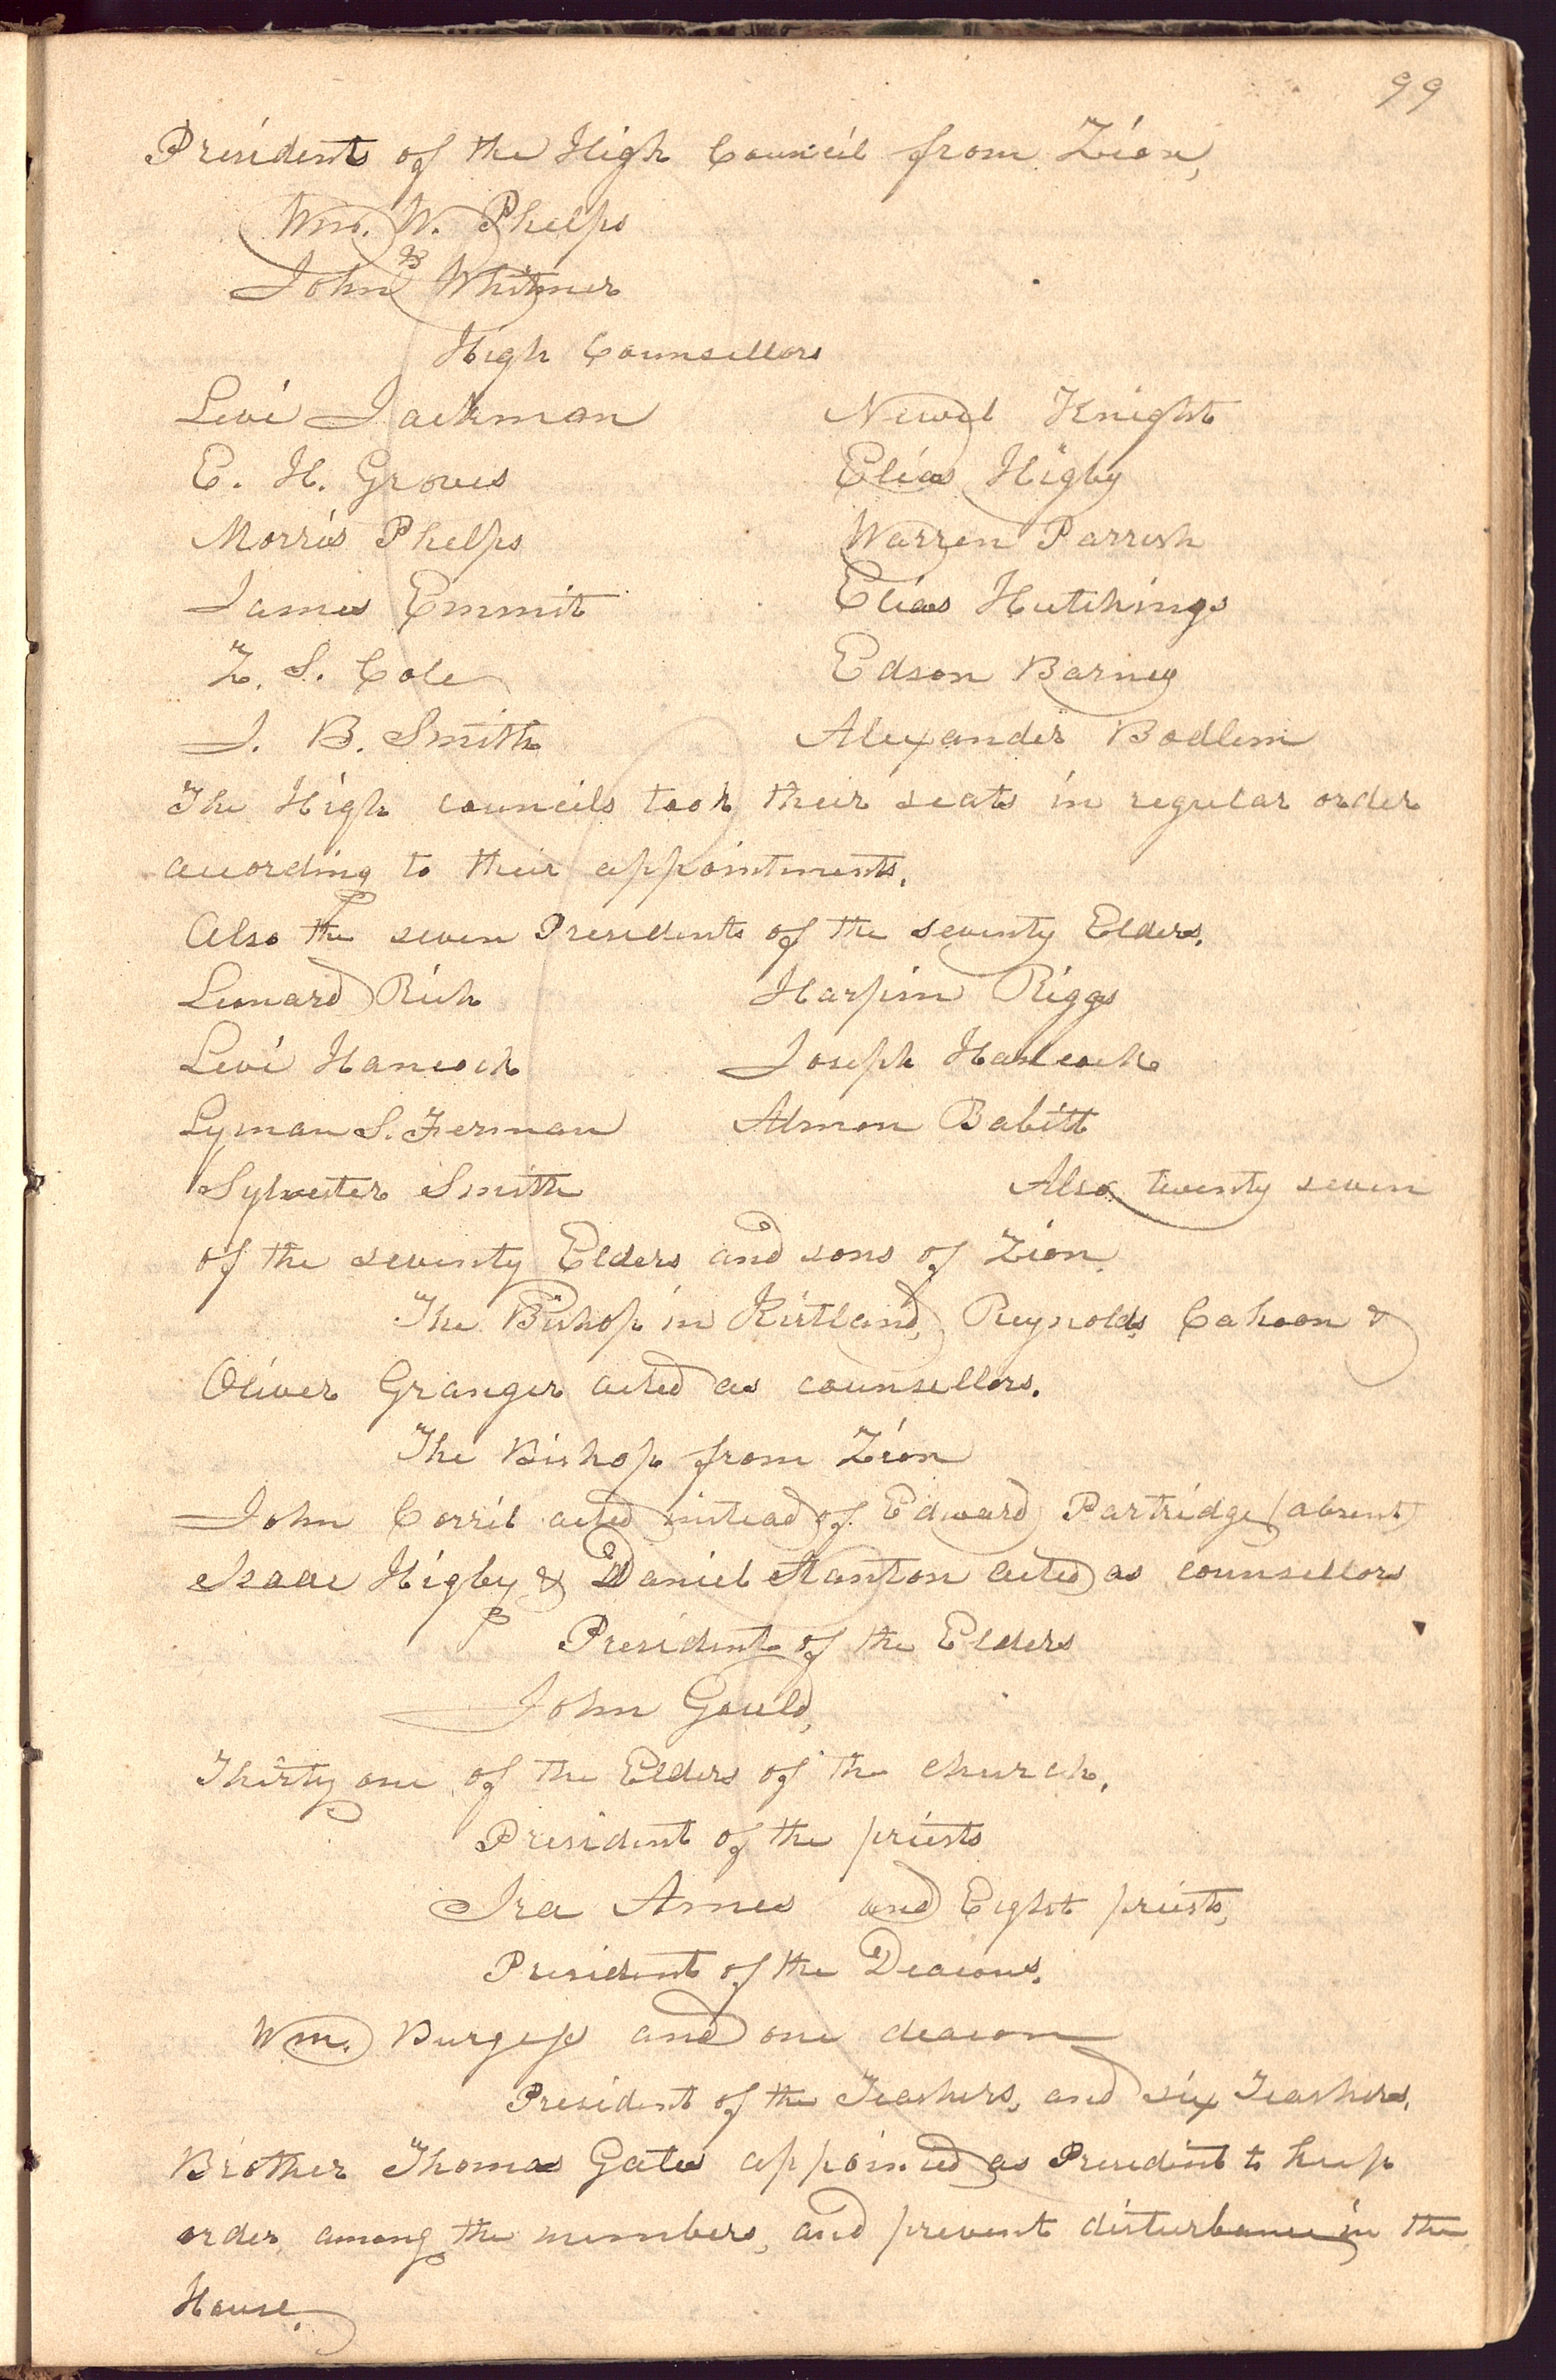 99
Presidents of the High Council from Zion,
Wm. W. Phelps
&
John Whitmer
High Counsellors
Levi Jackman Newel Knight
E. H. Groves Elias Higby
Morris Phelps Warren Parrish
James Emmit Elias Hutchings
Z. S. Cole Edson Barney
J. B. Smith Alexander Badlem
The High councils took their seats in regular order
according to their appointments.
Also the seven Presidents of the seventy Elders.
Leonard Rich Harpin Riggs
Levi Hancock Joseph Hancock
Lyman S. Ferman Almon Babitt
Sylvester Smith Also twenty seven
of the seventy Elders and sons of Zion.
The Bishop in Kirtland, Reynolds Cahoon &
Oliver Granger acted as counsellors.
The Bishop from Zion
John Corril acted instead of Edward Partridge (absent)
Isaac Higby & Daniel Stanton acted as counsellors
President of the Elders
John Gould,
Thirty one of the Elders of the church.
President of the priests
Ira Ames and Eight priests,
President of the Deacons.
Wm. Burgess and one deacon
President of the Teachers, and six Teachers,
Brother Thomas Gates appointed as President to keep
order among the members, and prevent disturbance in the
House.